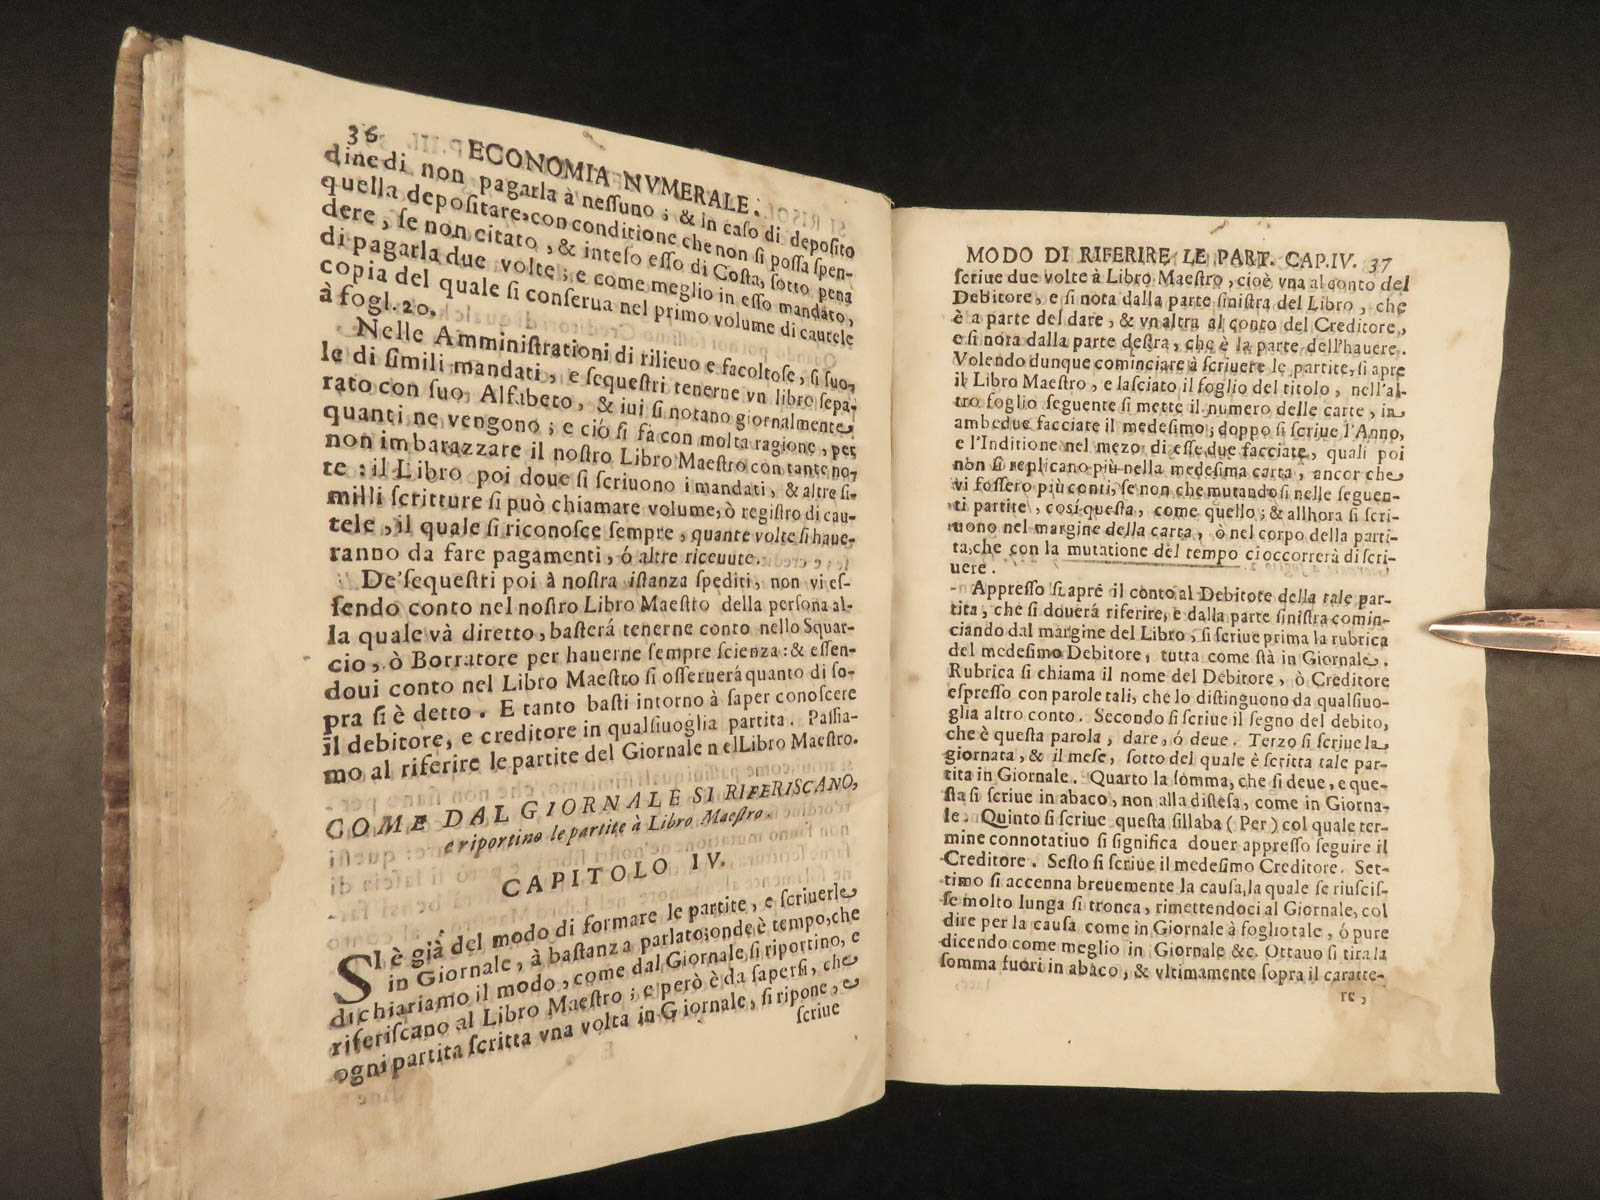 36 ECONOMIA NVMERALE.
dine di non pagarla à neſſuno; & in caſo di depoſito
quella depoſitare, con conditione che non ſi poſſa ſpen-
dere, ſe non citato, & inteſo eſſo di Coſta, ſotto pena
di pagarla due volte; e come meglio in eſſo mandato,
copia del quale ſi conſerua nel primo volume di cautele
à fogl. 20.
Nelle Amminiſtrationi di rilieuo e facoltoſe, ſi ſuo-
le di ſimili mandati, e ſequeſtri tenerne vn libro ſepa-
rato con ſuo Alfabeto, & iui ſi notano giornalmente
quanti ne vengono; e ciò ſi fà con molta ragione, per
non imbarazzare il noſtro Libro Maeſtro con tante no-
te: il Libro poi doue ſi ſcriuono i mandati, & altre ſi-
milli ſcritture ſi può chiamare volume, ò regiſtro di cau-
tele, il quale ſi riconoſce ſempre, quante volte ſi haue-
ranno da fare pagamenti, ó altre riceuute.
De'ſequeſtri poi à noſtra iſtanza ſpediti, non vi eſ-
ſendo conto nel noſtro Libro Maeſtro della perſona al-
la quale và diretto, baſterá tenerne conto nello Squar-
cio, ò Borratore per hauerne ſempre ſcienza: & eſſen-
doui conto nel Libro Maeſtro ſi oſſeruerá quanto di ſo-
pra ſi è detto. E tanto baſti intorno à ſaper conoſcere
il debitore, e creditore in qualſiuoglia partita. Paſſia-
mo al riferire le partite del Giornale n elLibro Maeſtro.
COME DAL GIORNALE SI RIFERISCANO,
e riportino le partite à Libro Maeſtro.
CAPITOLO IV.
SI è già del modo di formare le partite, e ſcriuerle
in Giornale, à baſtanza parlato; onde è tempo, che
dichiariamo il modo, come dal Giornale ſi riportino, e
riferiſcano al Libro Maeſtro; e però è da ſaperſi, che
ogni partita ſcritta vna volta in Giornale, ſi ripone, e
ſcriue
MODO DI RIFERIRE LE PART. CAP.IV. 37
ſcriue due volte à Libro Maeſtro, cioè vna al conto del
Debitore, e ſi nota dalla parte ſiniſtra del Libro, che
è a parte del dare, & vn altra al conto del Creditore,
e ſi nota dalla parte deſtra, che è la parte dell'hauere.
Volendo dunque cominciare à ſcriuere le partite, ſi apre
il Libro Maeſtro, e laſciato il foglio del titolo, nell'al-
tro foglio ſeguente ſi mette il numero delle carte, in
ambedue facciate il medeſimo; doppo ſi ſcriue l'Anno,
e l'Inditione nel mezo di eſſe due facciate, quali poi
non ſi replicano più nella medeſima carta, ancor che
vi foſſero più conti, ſe non che mutandoſi nelle ſeguen-
ti partite, coſi queſta, come quello; & allhora ſi ſcri-
uono nel margine della carta, ò nel corpo della parti-
ta, che con la mutatione del tempo ci occorrerà di ſcri-
uere.
Appreſſo ſi apre il conto al Debitore della tale par-
tita, che ſi douerá riferire, e dalla parte ſiniſtra comin-
ciando dal margine del Libro, ſi ſcriue prima la rubrica
del medeſimo Debitore, tutta come ſtà in Giornale.
Rubrica ſi chiama il nome del Debitore, ò Creditore
eſpreſſo con parole tali, che lo diſtinguono da qualſiuo-
glia altro conto. Secondo ſi ſcriue il ſegno del debito,
che è queſta parola, dare, ó deue. Terzo ſi ſcriue la
giornata, & il meſe, ſotto del quale è ſcritta tale par-
tita in Giornale. Quarto la ſomma, che ſi deue, e que-
ſta ſi ſcriue in abaco, non alla diſteſa, come in Giorna-
le. Quinto ſi ſcriue queſta ſillaba (Per) col quale ter-
mine connotatiuo ſi ſignifica douer appreſſo ſeguire il
Creditore. Seſto ſi ſcriue il medeſimo Creditore. Set-
timo ſi accenna breuemente la cauſa, la quale ſe riuſciſ-
ſe molto lunga ſi tronca, rimettendoci al Giornale, col
dire per la cauſa come in Giornale à foglio tale, ó pure
dicendo come meglio in Giornale &c. Ottauo ſi tira la
ſomma fuori in abaco, & vltimamente ſopra il caratte-
re,